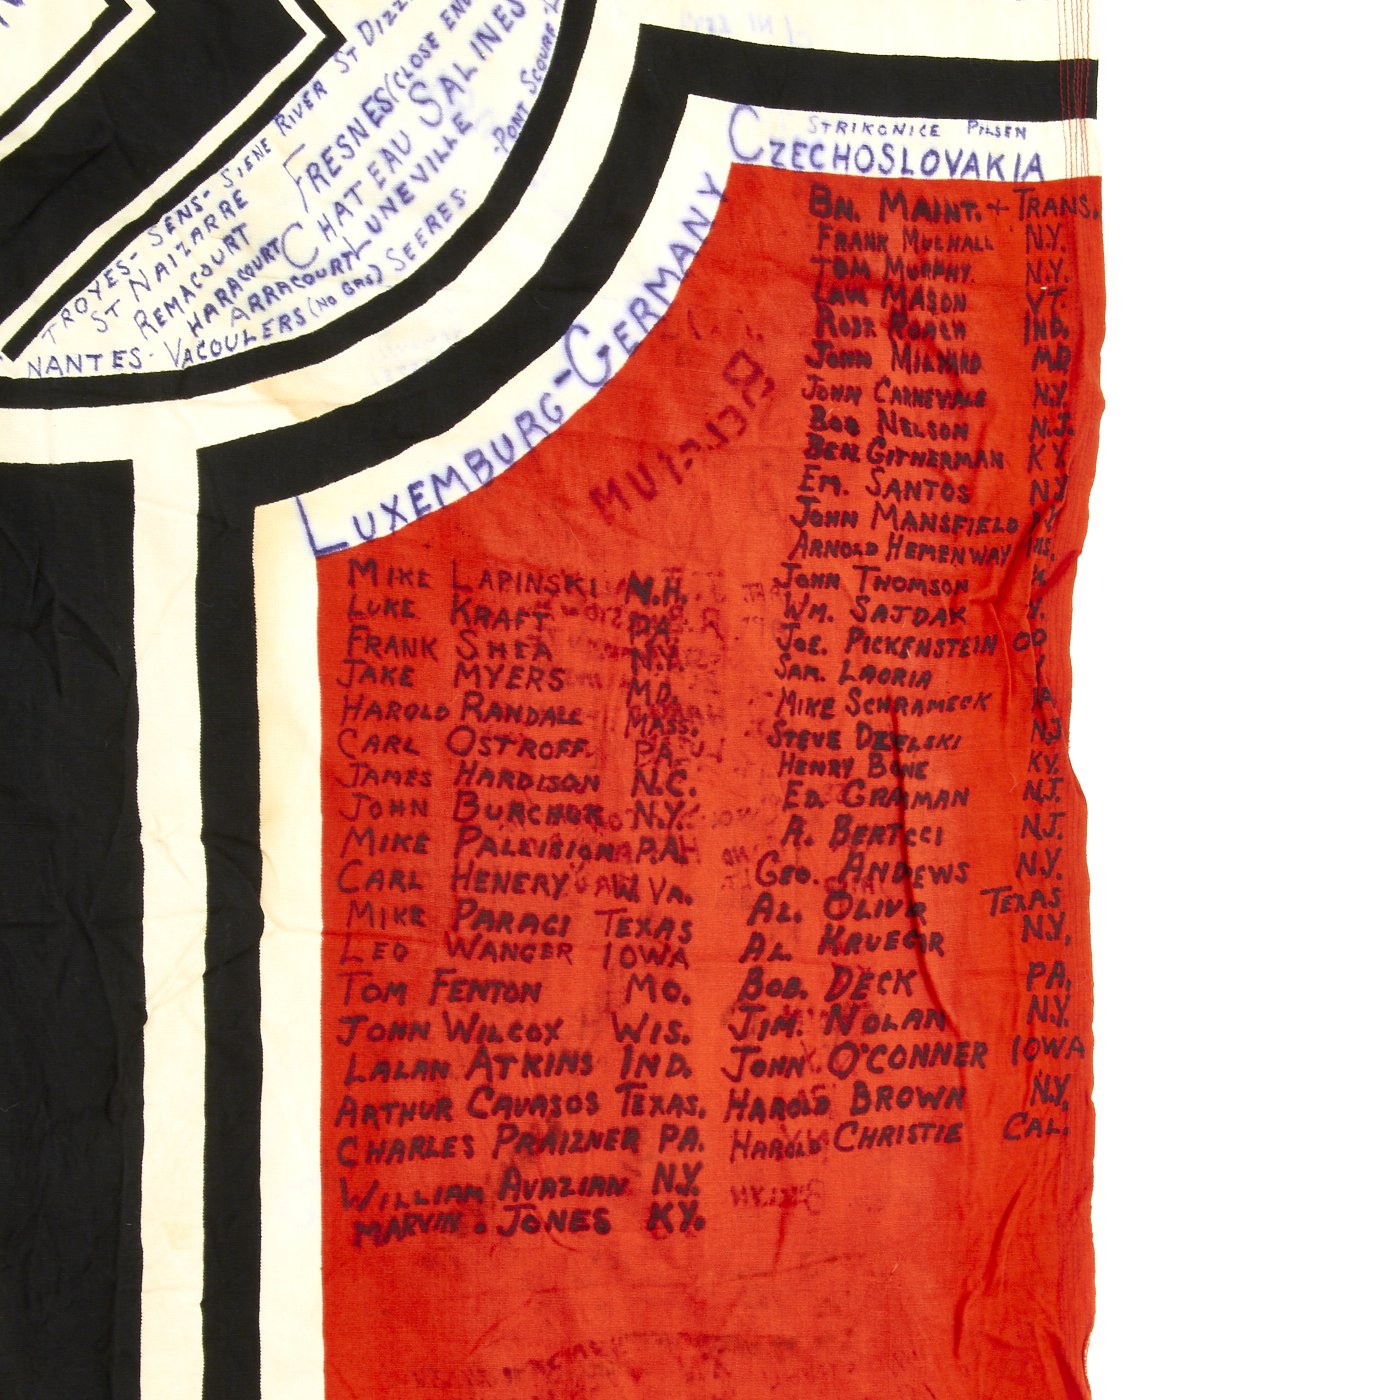 ST DIZ
SIENE RIVER
FRESNES (CLOSE EN
CHATEAU SALINES
LUNEVILLE
PONT SCOURF
TROYES - SENS -
ST NAIZARRE
REMACOURT
HARACOURT
ARRACOURT
NANTES - VACOULERS (NO GAS) SEERES -
STRIKONICE PILSEN
CZECHOSLOVAKIA
LUXEMBURG - GERMANY
BELGIUM
MIKE LAPINSKI N.H.
LUKE KRAFT PA.
FRANK SHEA N.Y.
JAKE MYERS MD.
HAROLD RANDALL MASS.
CARL OSTROFF. PA.
JAMES HARDISON N.C.
JOHN BURCHOK N.Y.
MIKE PALLIBION PA.
CARL HENERY W. VA.
MIKE PARAGI TEXAS
LEO WANGER IOWA
TOM FENTON MO.
JOHN WILCOX WIS.
LALAN ATKINS IND.
ARTHUR CAVASOS TEXAS.
CHARLES PRAIZNER PA.
WILLIAM AVAZIAN N.Y.
MARVIN. JONES KY.
BN. MAINT. + TRANS.
FRANK MULHALL N.Y.
TOM MURPHY. N.Y.
LAW. MASON VT.
ROBT ROACH IND.
JOHN MILNARD MD
JOHN CARNEVALE N.Y.
BOB NELSON N.J.
BEN. GITHERMAN KY
EM. SANTOS NY
JOHN MANSFIELD
ARNOLD HEMENWAY
JOHN THOMSON
WM. SAJDAK
JOE. PICKENSTEIN
SAM. LAORIA
MIKE SCHRAMECK
STEVE DZELSKI NJ
HENRY BONE KY.
ED. GRAIMAN N.J.
A. BERTCCI N.J.
GEO. ANDEWS N.Y.
AL. OLIVR TEXAS
AL KRUEGER N.Y.
BOB. DECK PA.
JIM. NOLAN N.Y.
JOHN O'CONNER IOWA
HAROLD BROWN N.Y.
HAROLD CHRISTIE CAL.